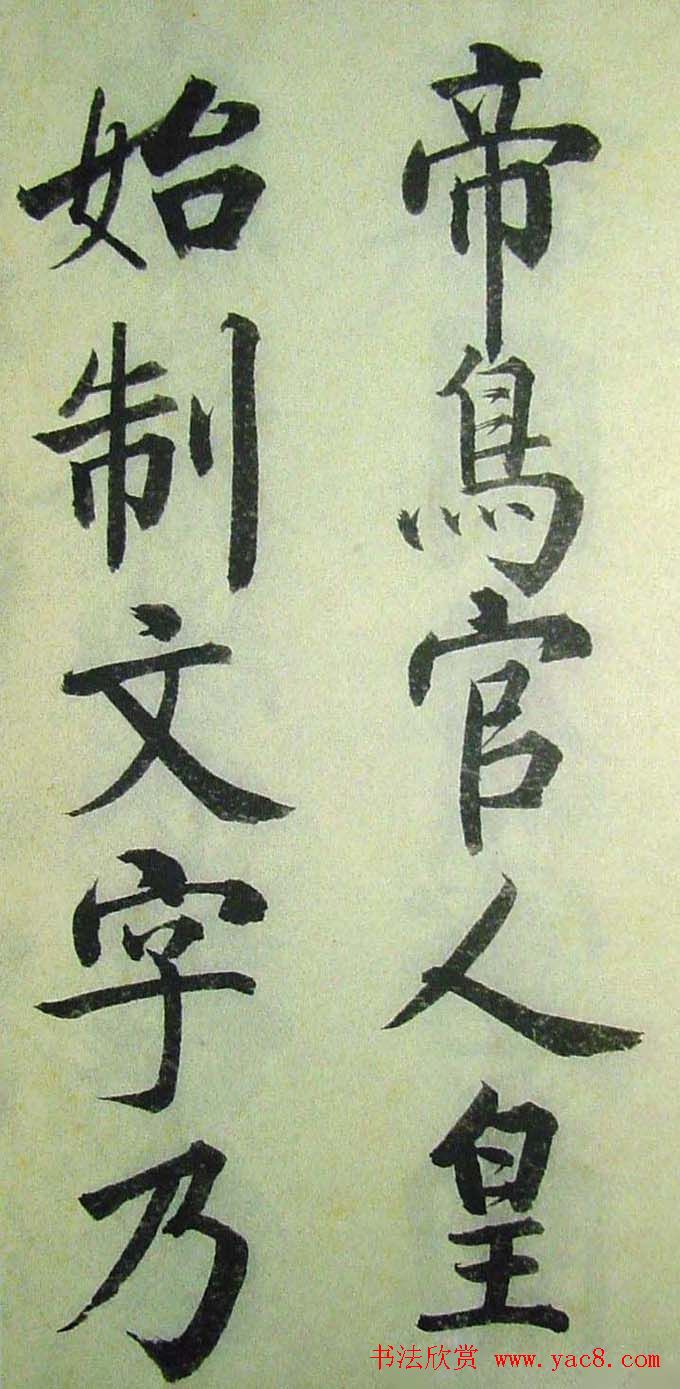 帝鳥官人皇
始制文字乃
书法欣赏 www.yac8.com